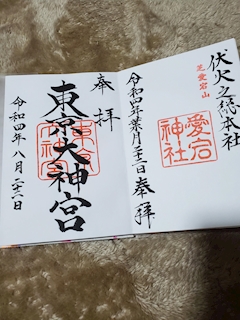 伏火之総本社
芝愛宕山
愛宕
神社
令和四年葉月二十三日
奉拝
奉拝
東京大神宮
東京
大神宮
令和四年八月二十三日